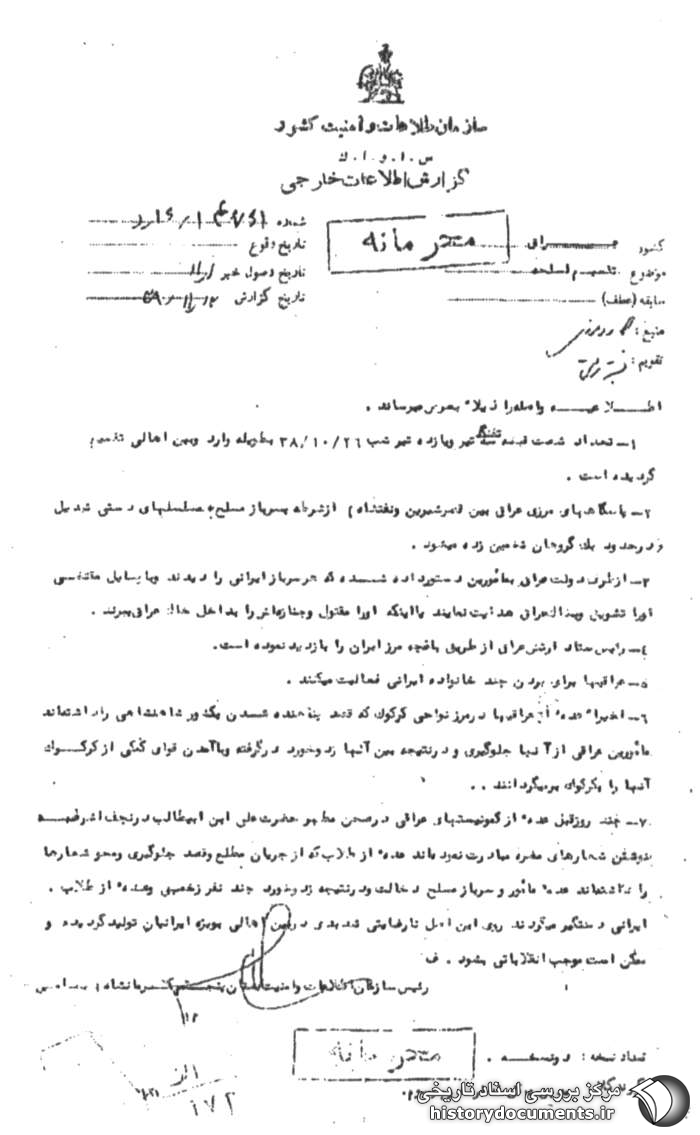 سازمان اطلاعات و امنیت کشور
س . ا . و . ا . ك
گزارش اطلاعات خارجی
شماره
تاریخ وقوع
تاریخ وصول خبر
تاریخ گزارش
محرمانه
کشور عراق
موضوع تقسیم اسلحه
سابقه (عطف)
منبع :
تقویم :
اطلاعیه واصله را ذیلا بعرض میرساند .
۱ـ تعداد شصت قبضه تفنگ سه تیر و یازده تیر شب ۳۸/۱۰/۲۶ بطویله وارد و بین اهالی تقسیم
گردیده است .
۲ـ پاسگاههای مرزی عراقی بین قصرشیرین و نفتشاه از شرطه بسرباز مسلح بمسلسلهای دستی تبدیل
و در حدود یك گروهان تخمین زده میشود .
۳ـ از طرف دولت عراق بمأمورین دستور داده شده که هر سرباز ایرانی را دیدند و با وسایل مقتضی
او را تشویق و بخاك عراق هدایت نمایند یا اینکه او را مقتول و جنازه‌اش را بداخل خاك عراق ببرند .
٤ـ رئیس ستاد ارتش عراق از طریق باغچه مرز ایران را بازدید نموده است.
۵ـ عراقیها برای بردن چند خانواده ایرانی فعالیت میکنند .
۶ـ اخیرا عده‌ای از عراقیها در مرز نواحی کرکوك که قصد پناهنده شدن بکشور شاهنشاهی را داشته‌اند
مأمورین عراقی از آنها جلوگیری و در نتیجه بین آنها زد و خورد در گرفته و با آمدن قوای کمکی از کرکوك
آنها را بکرکوك برمیگردانند . .
۷ـ چند روز قبل عده‌ای از کمونیستهای عراقی در صحن مطهر حضرت علی ابن ابیطالب در نجف اشرف
بنوشتن شعارهای مضره مبادرت نموده‌اند عده‌ای از طلاب که از جریان مطلع و قصد جلوگیری و محو شعارها
را داشته‌اند عده‌ای مأمور و سرباز مسلح دخالت و در نتیجه زد و خورد چند نفر زخمی و عده‌ای از طلاب .
ایرانی دستگیر میگردند روی این اصل نارضایتی شدیدی در بین اهالی بویژه ایرانیان تولید گردیده و
ممکن است موجب انقلاباتی بشود . ف
رئیس سازمان اطلاعات و امنیت استان پنجم کرمانشاه
محرمانه
تعداد نسخه : دو نسخه .
۱۷۲
مرکز بررسی اسناد تاریخی
historydocuments.ir